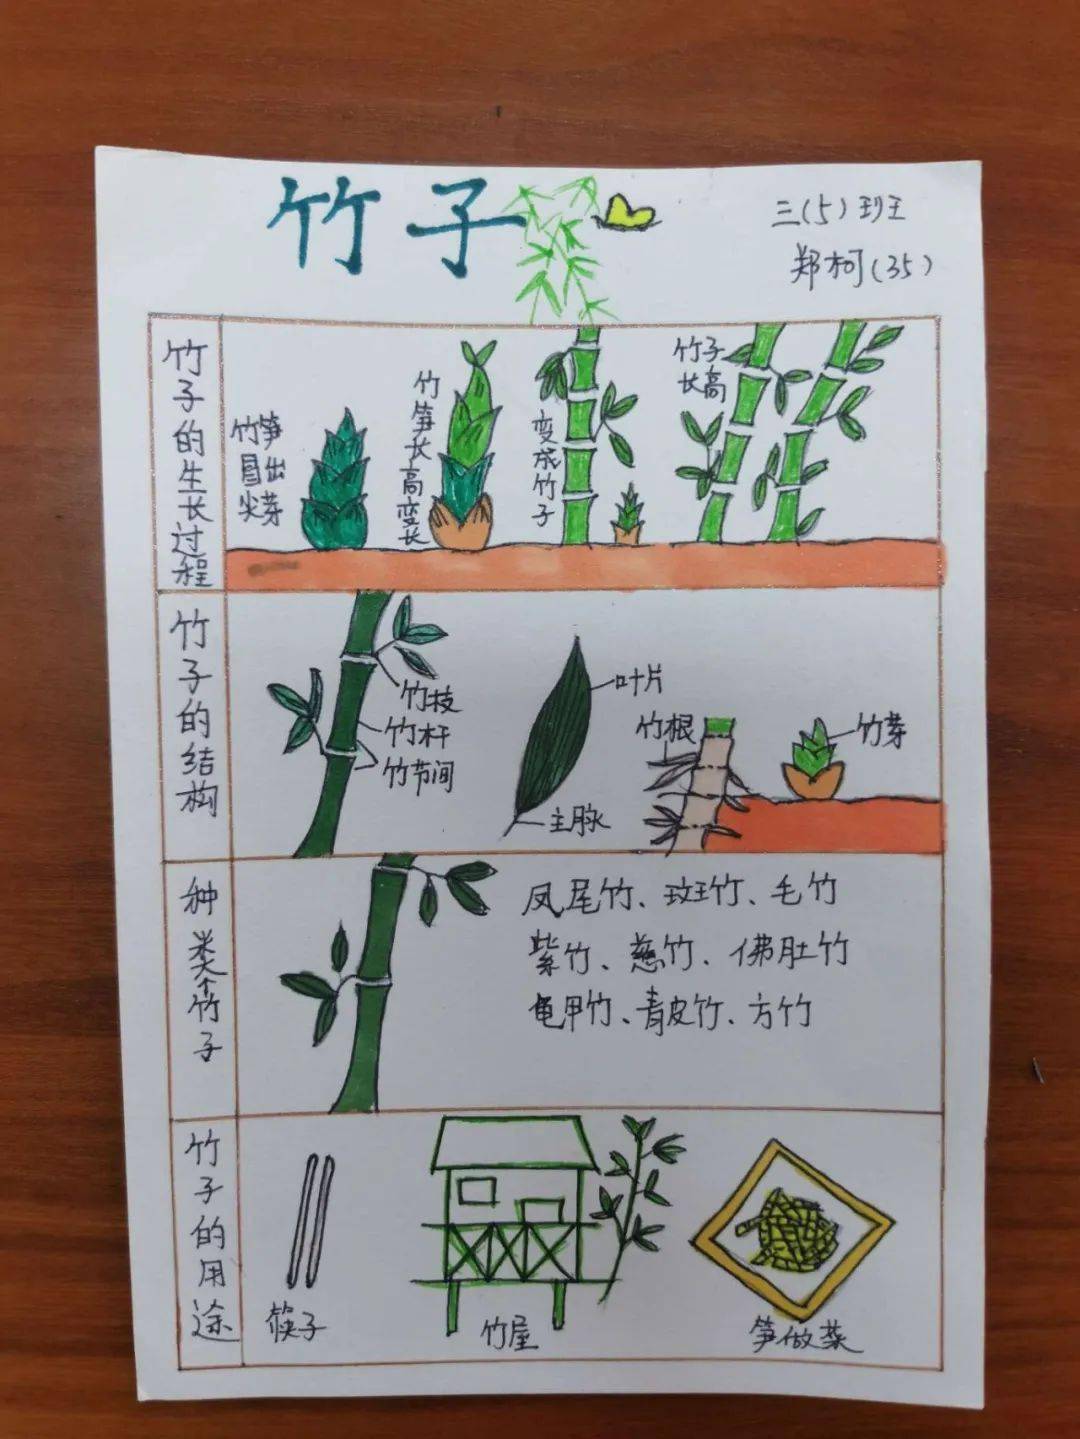 竹子
三(5)班
郑柯(35)
竹子的生长过程
竹笋冒出尖芽
竹笋长高变长
变成竹子
竹子长高
竹子的结构
竹枝
竹杆
竹节间
叶片
主脉
竹根
竹芽
种类竹子
凤尾竹、玟班竹、毛竹
紫竹、慈竹、佛肚竹
龟甲竹、青皮竹、方竹
竹子的用途
筷子
竹屋
笋做菜